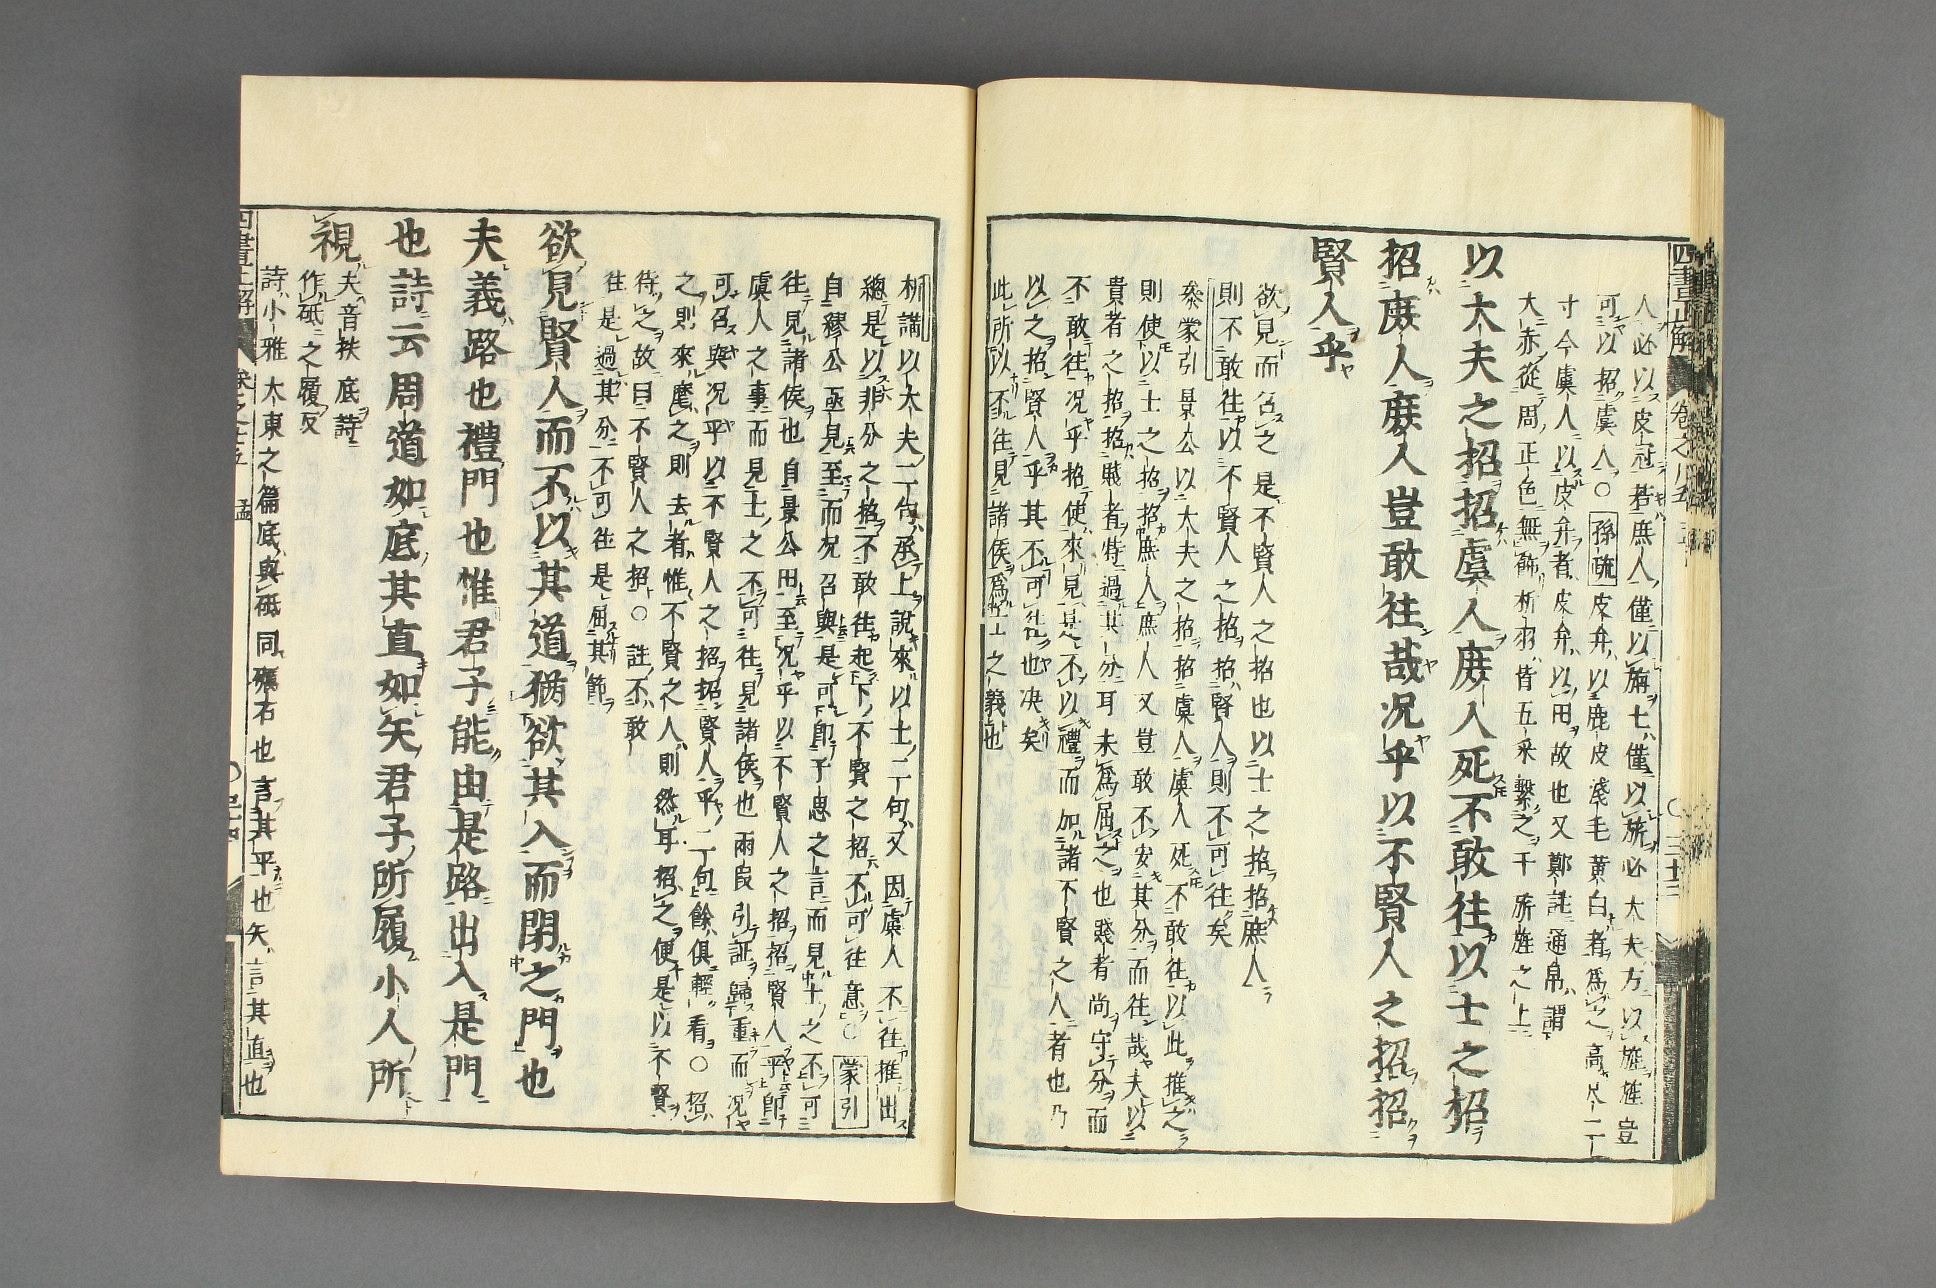 人必以皮冠若庶人僅以旃士僅以旂必大夫方以旌旌豈
可以招虞人○孫疏皮弁以鹿皮淺毛黄白者爲之高尺二
寸今虞人以皮弁者皮弁以田故也又鄭註通帛謂
大赤從周正色無飾析羽皆五采繫之于旂旌之上
以大夫之招招虞人虞人死不敢往以士之招
招庶人庶人豈敢往哉况乎以不賢人之招招
賢人乎
欲見而召之是不賢人之招也以士之招招庶人
則不敢往以不賢人之招招賢人則不可往矣
蒙引景公以大夫之招招虞人虞人死不敢往以此推之
則使以士之招招庶人庶人又豈敢不安其分而往哉夫以
貴者之招招賤者特過其分耳未爲屈之也賤者尚守分而
不敢往况乎招使來見甚不以禮而加諸不賢之人者也乃
以之招賢人乎其不可往也决矣
此所以不往見諸侯爲士之義也
四書正解 卷之
析講以大夫二句承上說來以士二句又因虞人不往推出
總是以非分之招不敢往起下不賢之招不可往意○蒙引
自繆公亟見至而况召與是可即子思之言而見士之不可
往見諸侯也自景公田至况乎以不賢人之招招賢人乎即
虞人之事而見士之不可往見諸侯也兩段引証歸重而况
可召與况乎以不賢人之招招賢人乎二句餘俱輕看○招
之則來麾之則去者惟不賢之人則然耳招之便是以不賢
待之故曰不賢人之招○註不敢
往是過其分不可往是屈其節
欲見賢人而不以其道猶欲其入而閉之門也
夫義路也禮門也惟君子能由是路出入是門
也詩云周道如底其直如矢君子所履小人所
視
夫音扶底詩
作砥之履反
詩小雅大東之篇底與砥同礪石也言其平也矢言其直也
四書正解